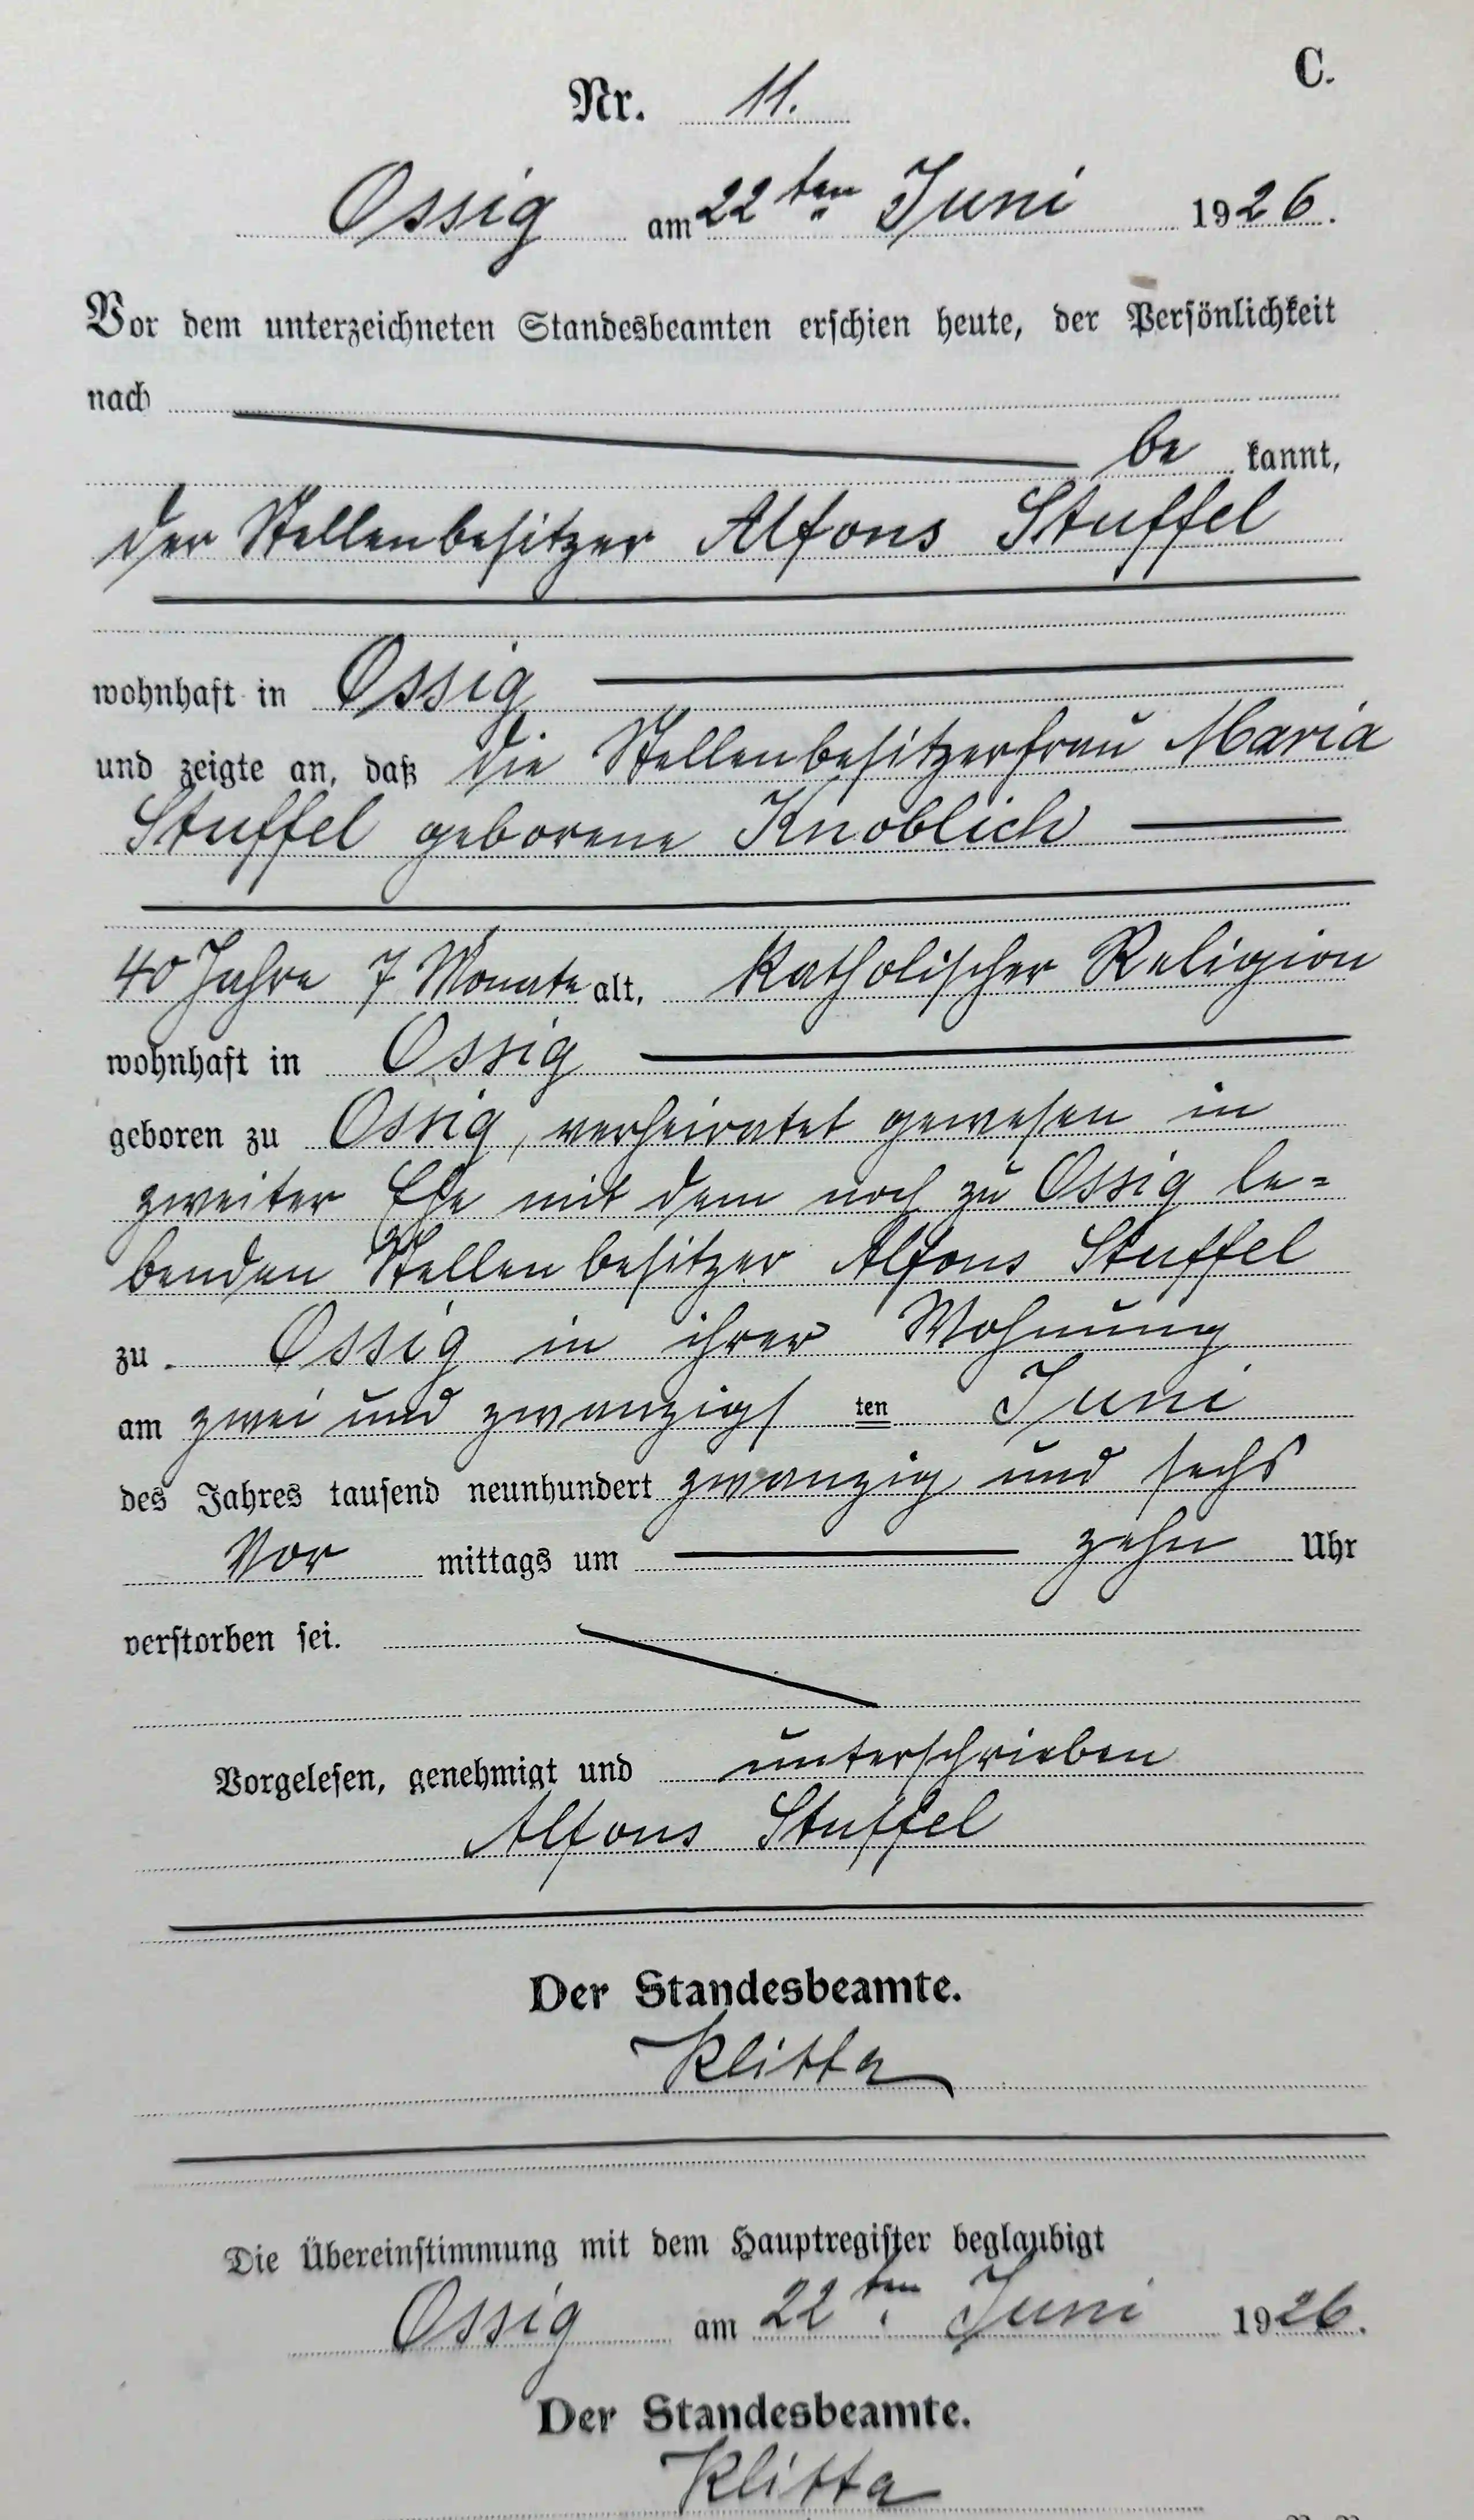 C.
Nr. 11.
Ossig am 22ten Juni 1926.
Vor dem unterzeichneten Standesbeamten erschien heute, der Persönlichkeit
nach
be kannt,
der Stellenbesitzer Alfons Stuffel
wohnhaft in Ossig
und zeigte an, daß die Stellenbesitzerfrau Maria
Stuffel geborene Knoblich
40 Jahre 7 Monate alt, katholischer Religion
wohnhaft in Ossig
geboren zu Ossig, verheiratet gewesen in
zweiter Ehe mit dem noch zu Ossig le=
benden Stellenbesitzer Alfons Stuffel
zu Ossig in ihrer Wohnung
am zwei und zwanzigsten Juni
des Jahres tausend neunhundert zwanzig und sechs
Vor mittags um zehn Uhr
verstorben sei.
Vorgelesen, genehmigt und unterschrieben
Alfons Stuffel
Der Standesbeamte.
Klitta
Die Übereinstimmung mit dem Hauptregister beglaubigt
Ossig am 22ten Juni 1926.
Der Standesbeamte.
Klitta